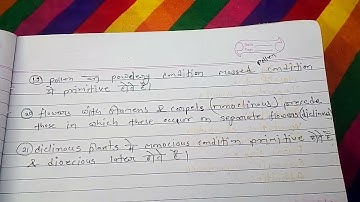 pollen
(19) pollen का powdery condition massed condition
से primitive होते है।
(20) flowers with stamens & carpels (monoclinous) precede
those in which these occur on separate flowers (diclinous)
(21) diclinous plants में monoecious condition primitive होते है
& dioecious later होते है।